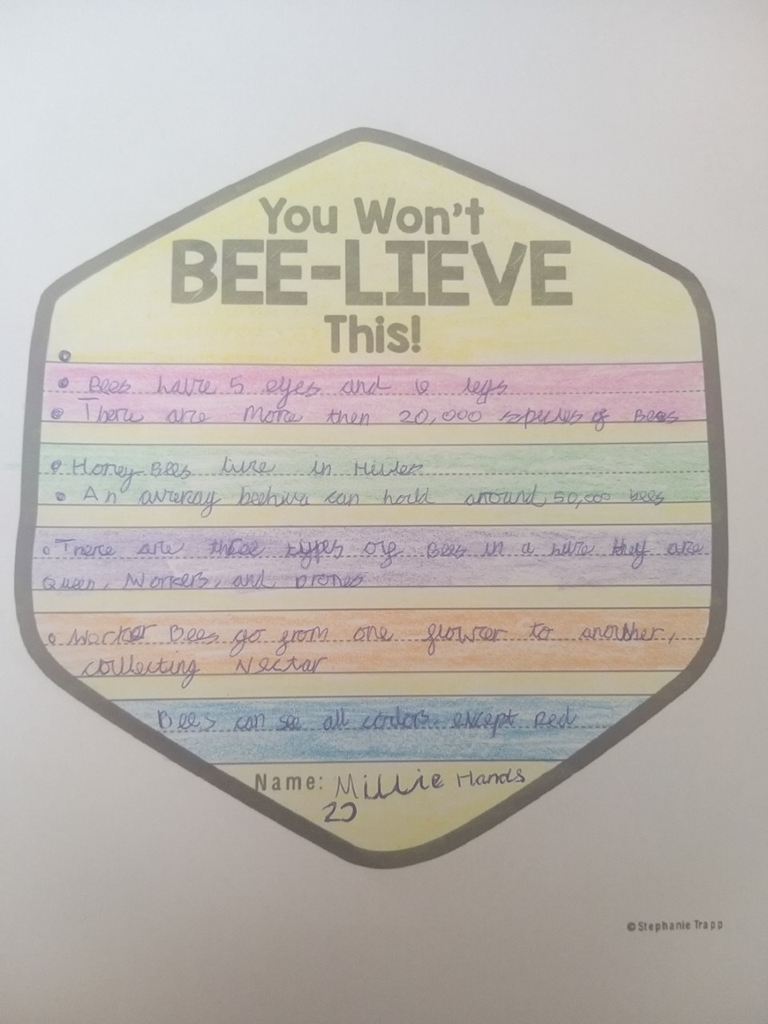 You Won't
BEE-LIEVE
This!
• Bees have 5 eyes and 6 legs
• There are More then 20,000 spicies of Bees
• Honey-Bees live in Hives
• An avereny beehive can hold around 50,000 bees
• There are three types of Bees in a hive they are
Queen, Workers, and Drones
• Worker Bees go from one flower to another,
collecting Nectar
Bees can see all colors except Red
Name: Millie Hands
2J
©Stephanie Trapp